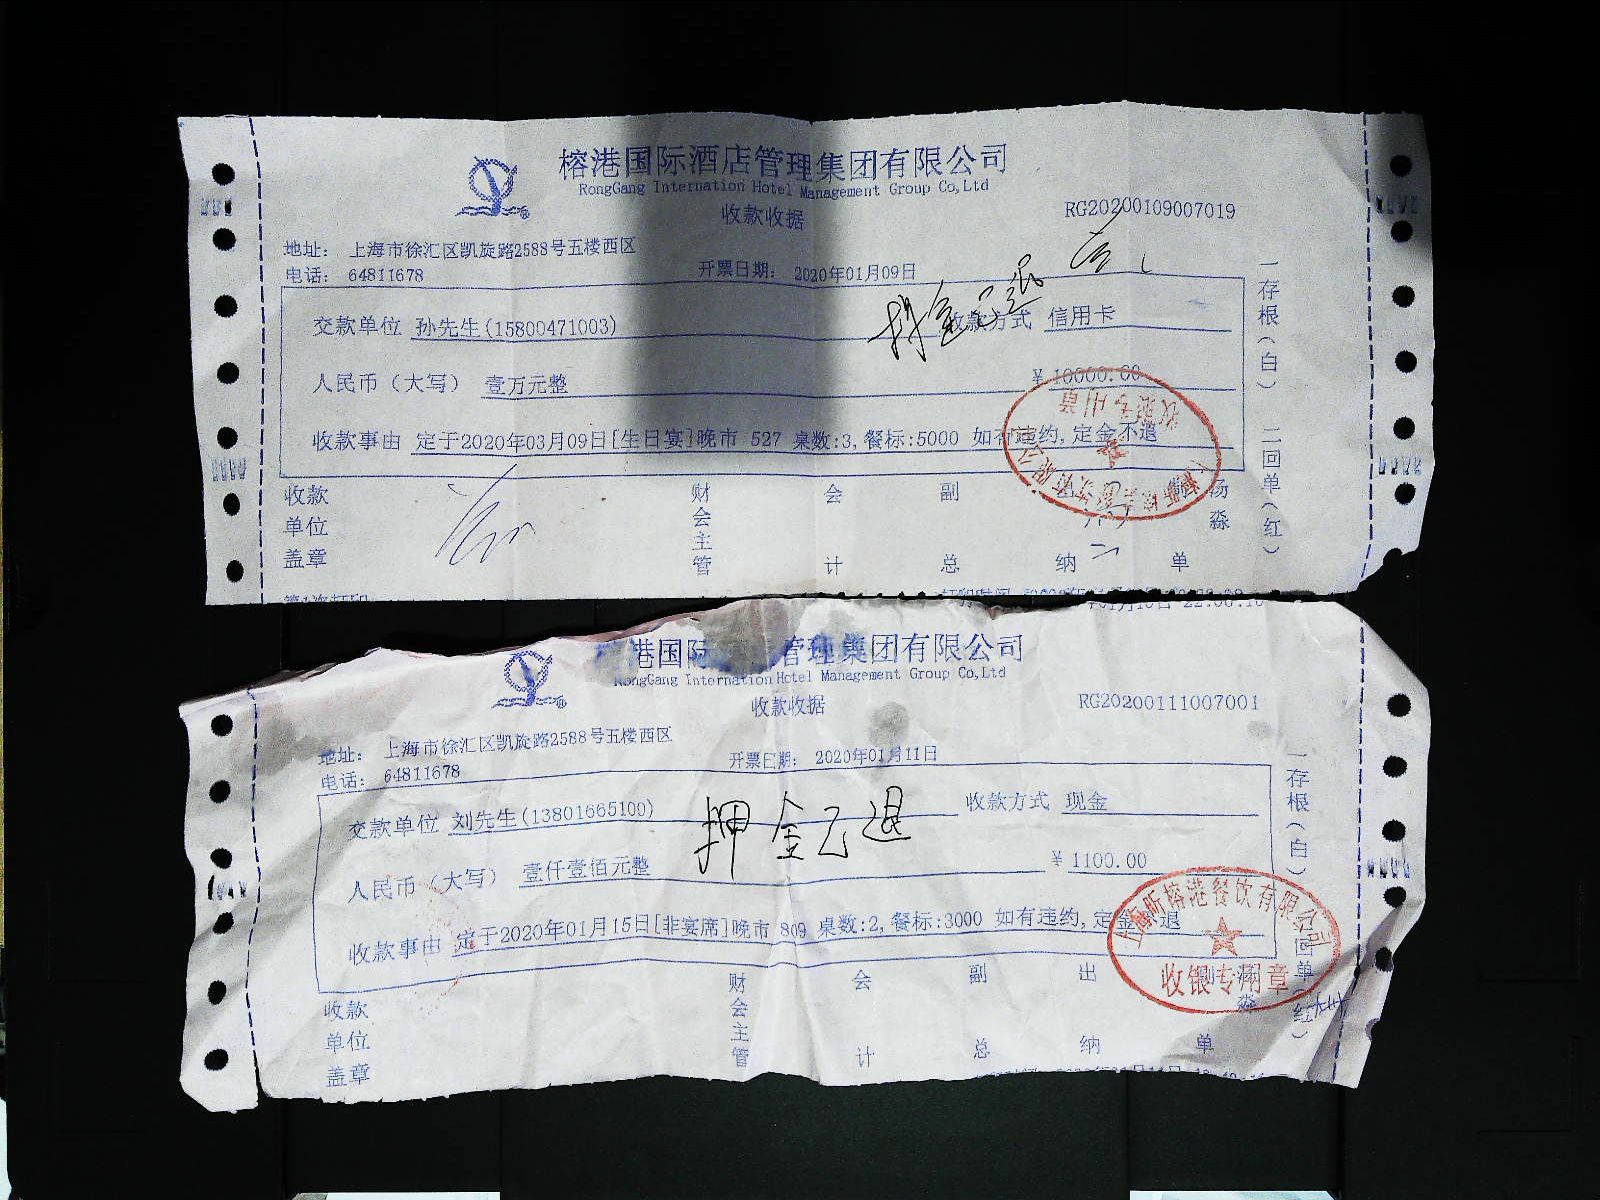 榕港国际酒店管理集团有限公司
RongGang International Hotel Management Group Co,Ltd
收款收据
RG20200109007019
地址： 上海市徐汇区凯旋路2588号五楼西区
电话： 64811678
开票日期： 2020年01月09日
押金已退
交款单位 孙先生(15800471003) 收款方式 信用卡
人民币（大写） 壹万元整 ¥ 10000.00
收款事由 定于2020年03月09日[生日宴]晚市 527 桌数:3,餐标:5000 如有违约,定金不退
收款单位盖章 财会主管 会计 副总 纳 单 杨淼
一存根（白） 二回单（红）
港国际 管理集团有限公司
RongGang International Hotel Management Group Co,Ltd
收款收据
RG20200111007001
地址： 上海市徐汇区凯旋路2588号五楼西区
电话： 64811678
开票日期： 2020年01月11日
押金已退
交款单位 刘先生(13801665100) 收款方式 现金
人民币（大写） 壹仟壹佰元整 ¥ 1100.00
收款事由 定于2020年01月15日[非宴席]晚市 809 桌数:2,餐标:3000 如有违约,定金 退
收款单位盖章 财会主管 会计 副总 出纳 单 淼
一存根（白） 回单（红）
上海昕榕港餐饮有限公司
收银专用章